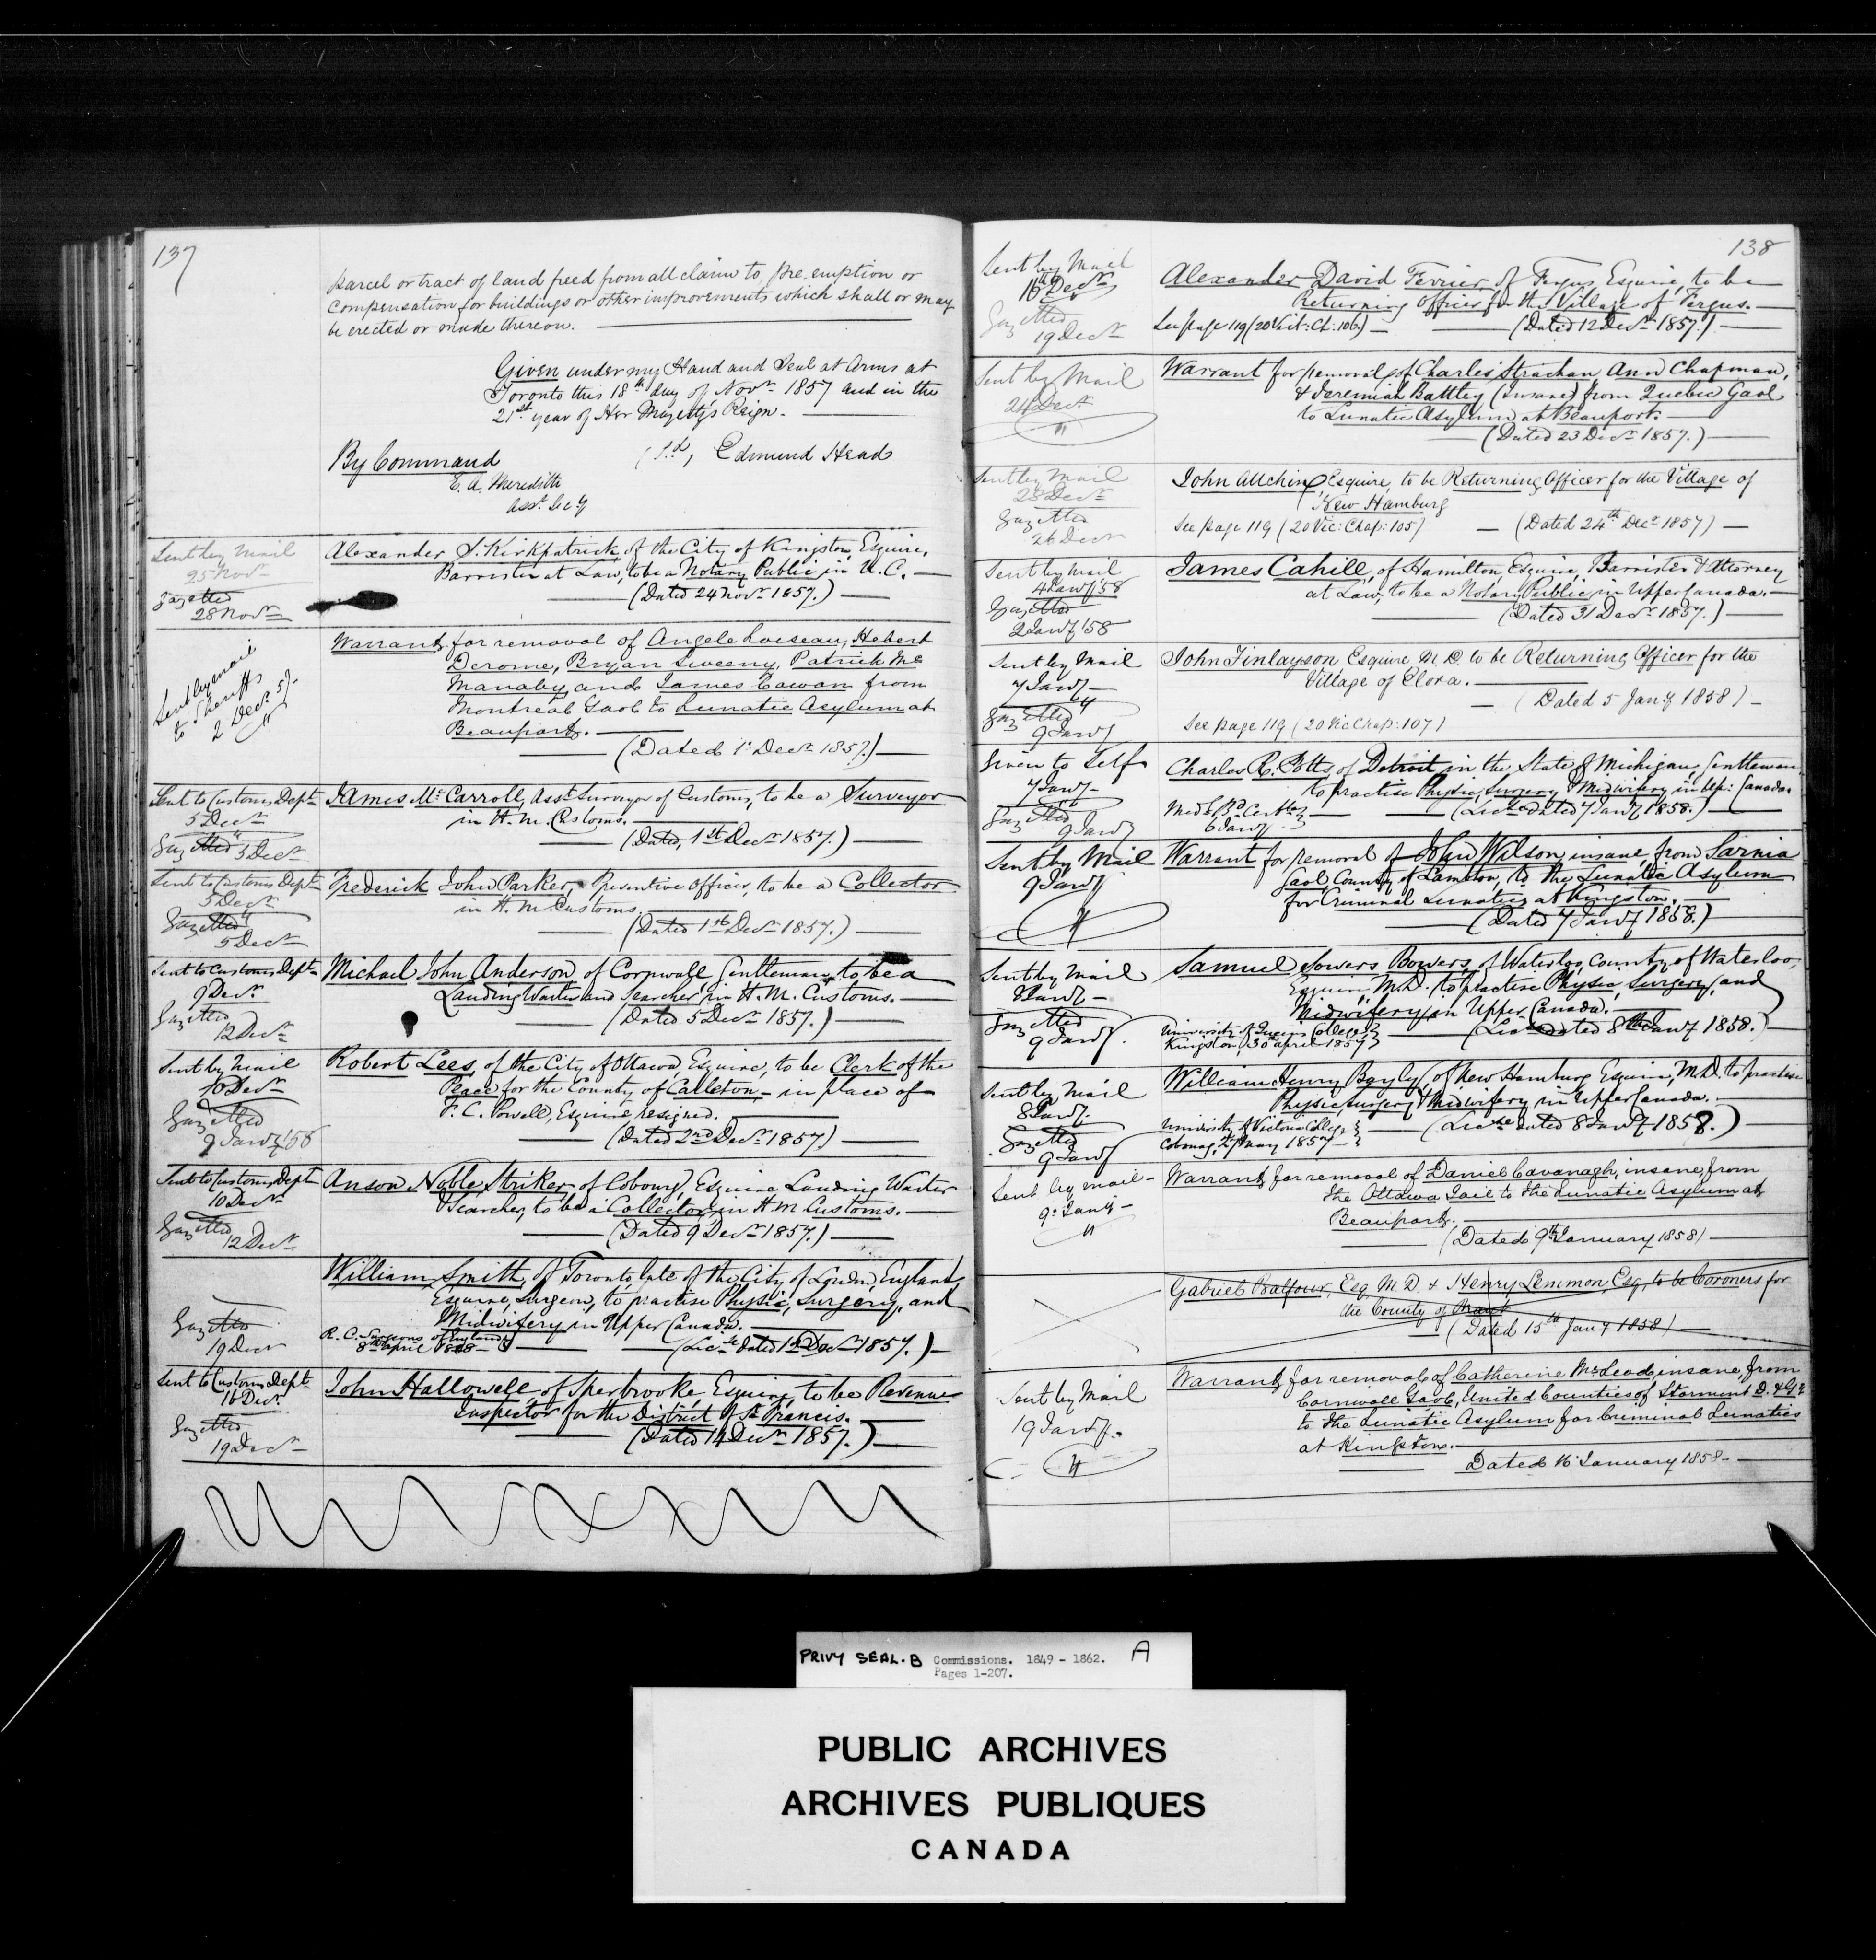 137
parcel or tract of land freed from all claim to pre emption or
compensation for buildings or other improvements which shall or may
be erected or made thereon.
Given under my Hand and Seal at Arms at
Toronto this 18th day of Novr 1857 and in the
21st year of Her Majesty's Reign.
By Command
(Sd, Edmund Head
E. A. Meredith
Asst. Secy
Sent by Mail
25 Novr
Gazetted
28 Novr
Alexander S. Kirkpatrick, of the City of Kingston, Esquire,
Barrister at Law, to be a Notary Public in U.C.
(Dated 24 Novr 1857.)
Sent by mail
to Sheriffs
2 Decr 57.
Warrant for removal of Angele Loiseau, Hebert
Derome, Bryan Sweeny, Patrick Mc
Manaby and James Cowan from
Montreal Gaol to Lunatic Asylum at
Beauport.
(Dated 1 Decr 1857.)
Sent to Customs Dept
5 Decr
Gazetted 5 Decr
James Mc Carroll, Asst Surveyor of Customs, to be a Surveyor
in H. M. Customs.
(Dated, 1st Decr 1857.)
Sent to Customs Dept
5 Decr
Gazetted
5 Decr
Frederick John Parker, Preventive Officer, to be a Collector
in H. M. Customs.
(Dated 1st Decr 1857.)
Sent to Customs Dept
9 Decr
Gazetted
12 Decr
Michael John Anderson of Cornwall, Gentleman, to be a
Landing Waiter and Searcher, in H. M. Customs.
(Dated 5 Decr 1857.)
Sent by Mail
10 Decr
Gazetted
9 Jany '58
Robert Lees, of the City of Ottawa, Esquire, to be Clerk of the
Peace for the County of Carleton, - in place of
F. C. Powell, Esquire, resigned.
(Dated 2nd Decr 1857)
Sent to Customs Dept
10 Decr
Gazetted
12 Decr
Anson Noble Striker of Cobourg, Esquire Landing Waiter
& Searcher, to be a Collector in H. M. Customs.
(Dated 9 Decr 1857.)
Gazetted
19 Decr
William Smith, of Toronto, late of the City of London, England,
Esquire, Surgeon, to practise Physic, Surgery, and
Midwifery in Upper Canada.
R. C. Surgeons of England
8th April
(Licse dated Decr 1857.)
Sent to Customs Dept
16 Decr
Gazetted
19 Decr
John Hallowell, of Sherbrooke, Esquire, to be Revenue
Inspector for the District of St Francis.
(Dated 14 Decr 1857.)
138
Sent by Mail
16th Decr
Gazetted
19 Decr
Alexander David Ferrier, of Fergus, Esquire, to be
Returning Officer for the Village of Fergus.
See page 119 (20 Vict: Ch: 106)
(Dated 12 Decr 1857.)
Sent by Mail
24 Decr
Warrant for removal of Charles Strachan, Ann Chapman,
& Jeremiah Battley (Insane) from Quebec Gaol
to Lunatic Asylum at Beauport.
(Dated 23 Decr 1857.)
Sent by Mail
28 Decr
Gazetted
26 Decr
John Allchin, Esquire, to be Returning Officer for the Village of
New Hamburg
See page 119 (20 Vic: Chap: 105)
(Dated 24th Decr 1857)
Sent by Mail
4 Jany '58
Gazetted
2 Jany '58
James Cahill, of Hamilton, Esquire, Barrister & Attorney
at Law, to be a Notary Public in Upper Canada.
(Dated 31 Decr 1857.)
Sent by Mail
7 Jany
Gazetted
9 Jany
John Finlayson, Esquire, M. D. to be Returning Officer for the
Village of Elora.
(Dated 5 Jany 1858)
See page 119 (20 Vic Chap: 107)
Given to Self
7 Jany
Gazetted
9 Jany
Charles R. Potts, of Detroit, in the State of Michigan, Gentleman
to practise Physic, Surgery & Midwifery in Up: Canada.
Med: Bd Certte
6 Jany
(Licse dated 7 Jany 1858.)
Sent by Mail
9 Jany
Warrant for removal of John Wilson, insane, from Sarnia
Gaol, County of Lambton, to the Lunatic Asylum
for Criminal Lunatics at Kingston.
(Dated 7 Jany 1858.)
Sent by Mail
8 Jany
Gazetted
9 Jany.
Samuel Sowers Bowers, of Waterloo, County of Waterloo,
Esquire, M.D. to practise Physic, Surgery, and
Midwifery, in Upper Canada.
University of Queens College
Kingston, 30th April 1857
(Licse dated 8th Jany 1858.)
Sent by Mail
8 Jany.
Gazetted
9 Jany
William Henry Bayly, of New Hamburg Esquire, M.D. to practise
Physic, Surgery & Midwifery in Upper Canada.
University of Victoria College
Cobourg, May 1857
(Licse dated 8 Jany 1858.)
Sent by mail
9 Jany
Warrant for removal of Daniel Cavanagh, insane, from
the Ottawa Jail to the Lunatic Asylum at
Beauport.
(Dated 9th January 1858)
Gabriel Balfour, Esq. M.D. & Henry Lemmon, Esq, to be Coroners for
the County of Brant
(Dated 15th Jany 1858)
Sent by Mail
19 Jany.
Warrant for removal of Catherine McLeod, insane, from
Cornwall Gaol, United Counties of Stormont D. & G.
to the Lunatic Asylum for Criminal Lunatics
at Kingston.
Dated 16 January 1858
PRIVY SEAL. B Commissions. 1849 - 1862. A
Pages 1-207.
PUBLIC ARCHIVES
ARCHIVES PUBLIQUES
CANADA